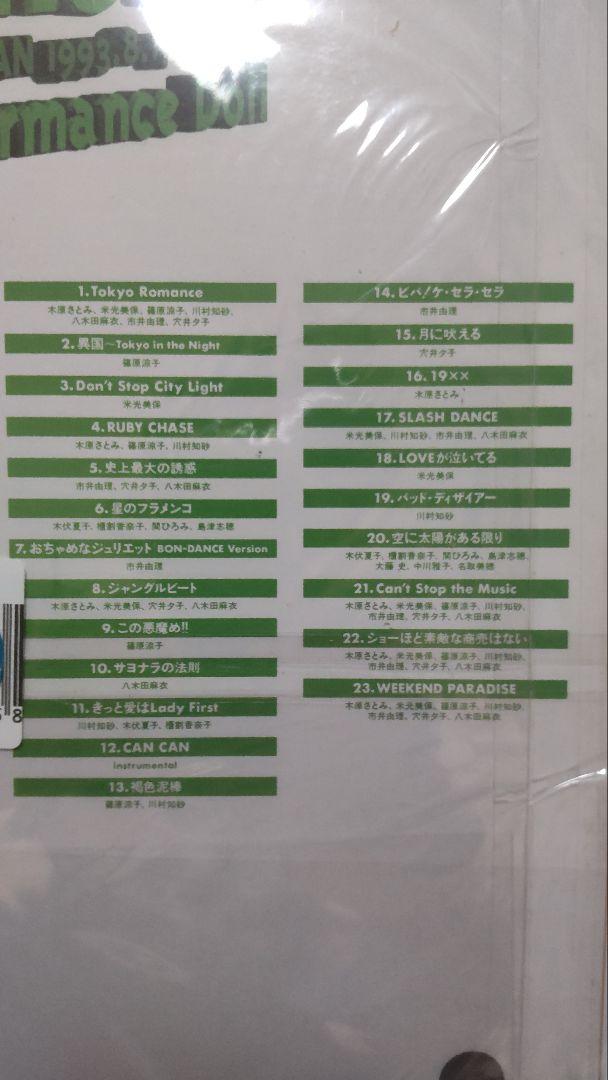 AN 1993.8.
rmance Doll
1.Tokyo Romance
木原さとみ、米光美保、篠原涼子、川村知砂、
八木田麻衣、市井由理、穴井夕子
2.異国〜Tokyo in the Night
篠原涼子
3.Don't Stop City Light
米光美保
4.RUBY CHASE
木原さとみ、篠原涼子、川村知砂
5.史上最大の誘惑
市井由理、穴井夕子、八木田麻衣
6.星のフラメンコ
木伏夏子、櫃割香奈子、関ひろみ、島津志穂
7.おちゃめなジュリエット BON-DANCE Version
市井由理
8.ジャングルビート
木原さとみ、米光美保、穴井夕子、八木田麻衣
9.この悪魔め!!
篠原涼子
10.サヨナラの法則
八木田麻衣
11.きっと愛はLady First
川村知砂、木伏夏子、櫃割香奈子
12.CAN CAN
instrumental
13.褐色泥棒
篠原涼子、川村知砂
14.ビバ!ケ・セラ・セラ
市井由理
15.月に吠える
穴井夕子
16.19××
木原さとみ
17.SLASH DANCE
米光美保、川村知砂、市井由理、八木田麻衣
18.LOVEが泣いてる
米光美保
19.バッド・ディザイアー
川村知砂
20.空に太陽がある限り
木伏夏子、櫃割香奈子、関ひろみ、島津志穂、
大藤 史、中川雅子、名取美穂
21.Can't Stop the Music
木原さとみ、米光美保、篠原涼子、川村知砂、
市井由理、穴井夕子、八木田麻衣
22.ショーほど素敵な商売はない
木原さとみ、米光美保、篠原涼子、川村知砂、
市井由理、穴井夕子、八木田麻衣
23.WEEKEND PARADISE
木原さとみ、米光美保、篠原涼子、川村知砂、
市井由理、穴井夕子、八木田麻衣
8